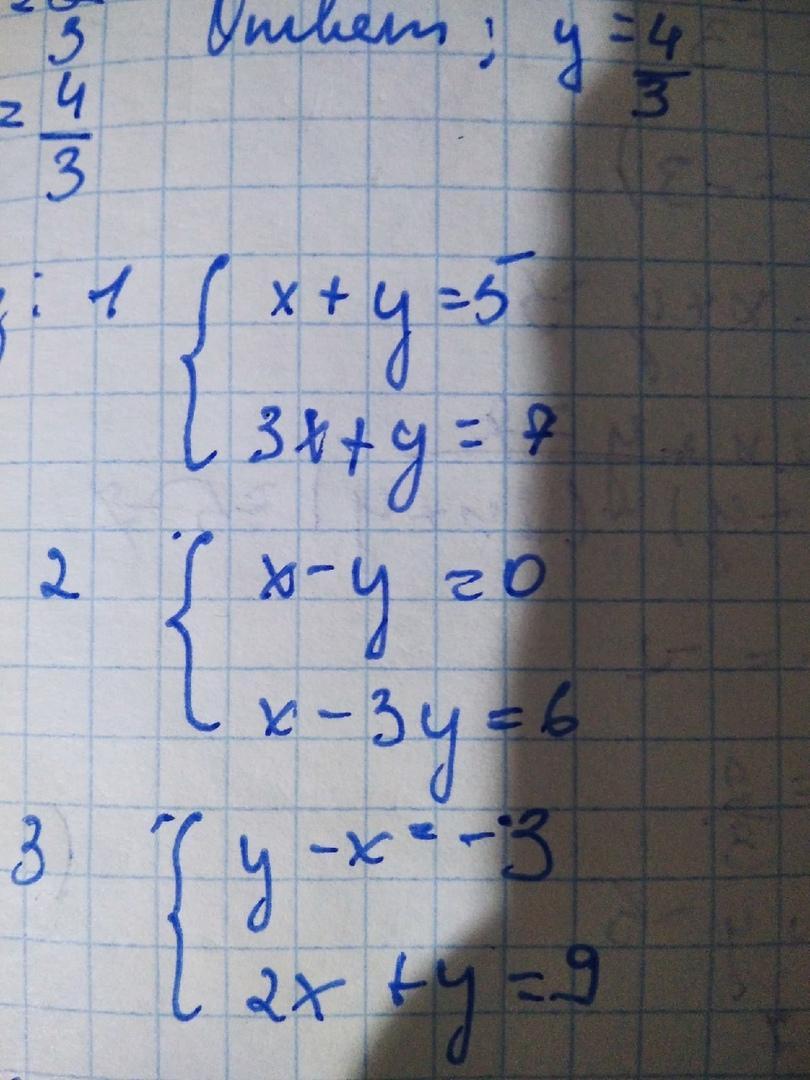 3 Ответ; y = 4/3
= 4/3
: 1 { x + y = 5
3x + y = 7
2 { x - y = 0
x - 3y = 6
3) { y - x = -3
2x + y = 9